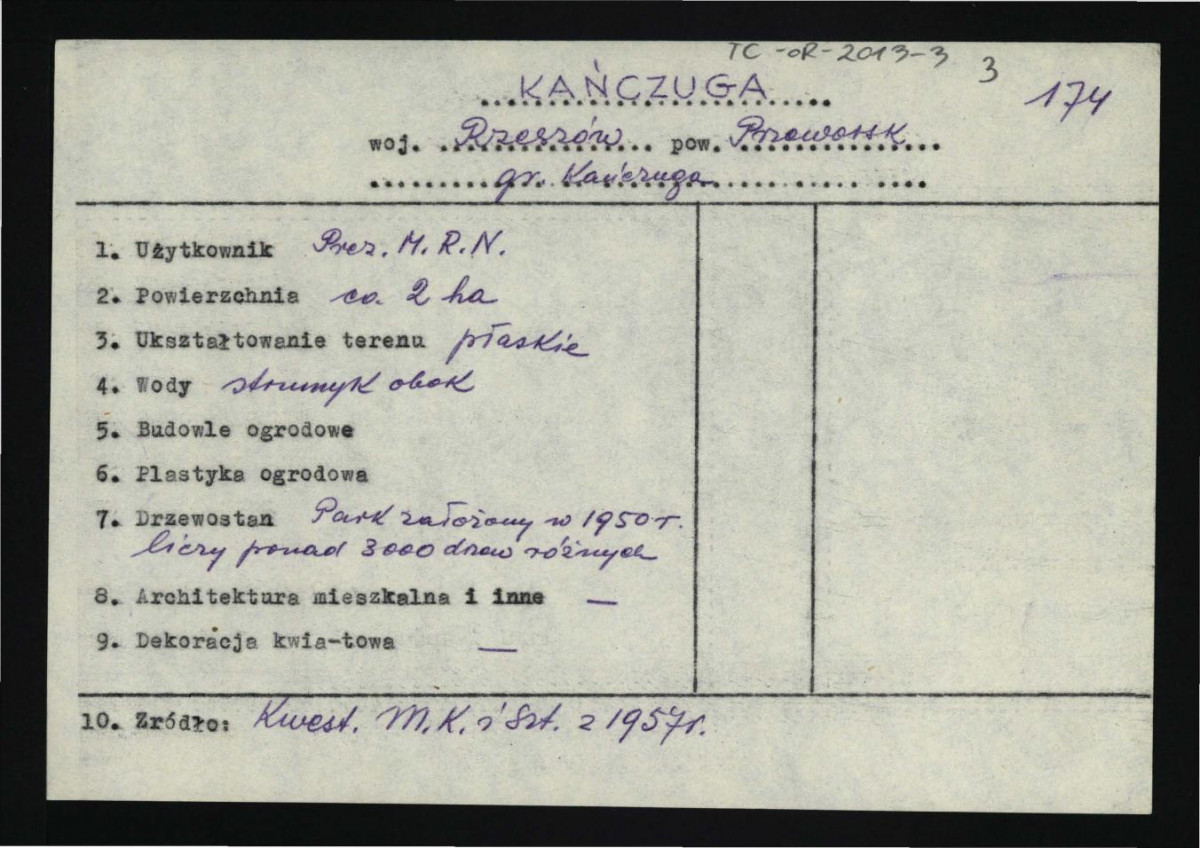 TC-OR-2013-3 3
KAŃCZUGA 174
woj. Rzeszów pow. Przeworsk
gr. Kańczuga
1. Użytkownik Prez. M.R.N.
2. Powierzchnia ca. 2 ha
3. Ukształtowanie terenu płaskie
4. Wody strumyk obok
5. Budowle ogrodowe
6. Plastyka ogrodowa
7. Drzewostan Park założony w 1950 r.
liczy ponad 3000 drzew różnych
8. Architektura mieszkalna i inne —
9. Dekoracja kwia-towa —
10. Zródło: Kwest. M.K. i Szt. z 1957 r.